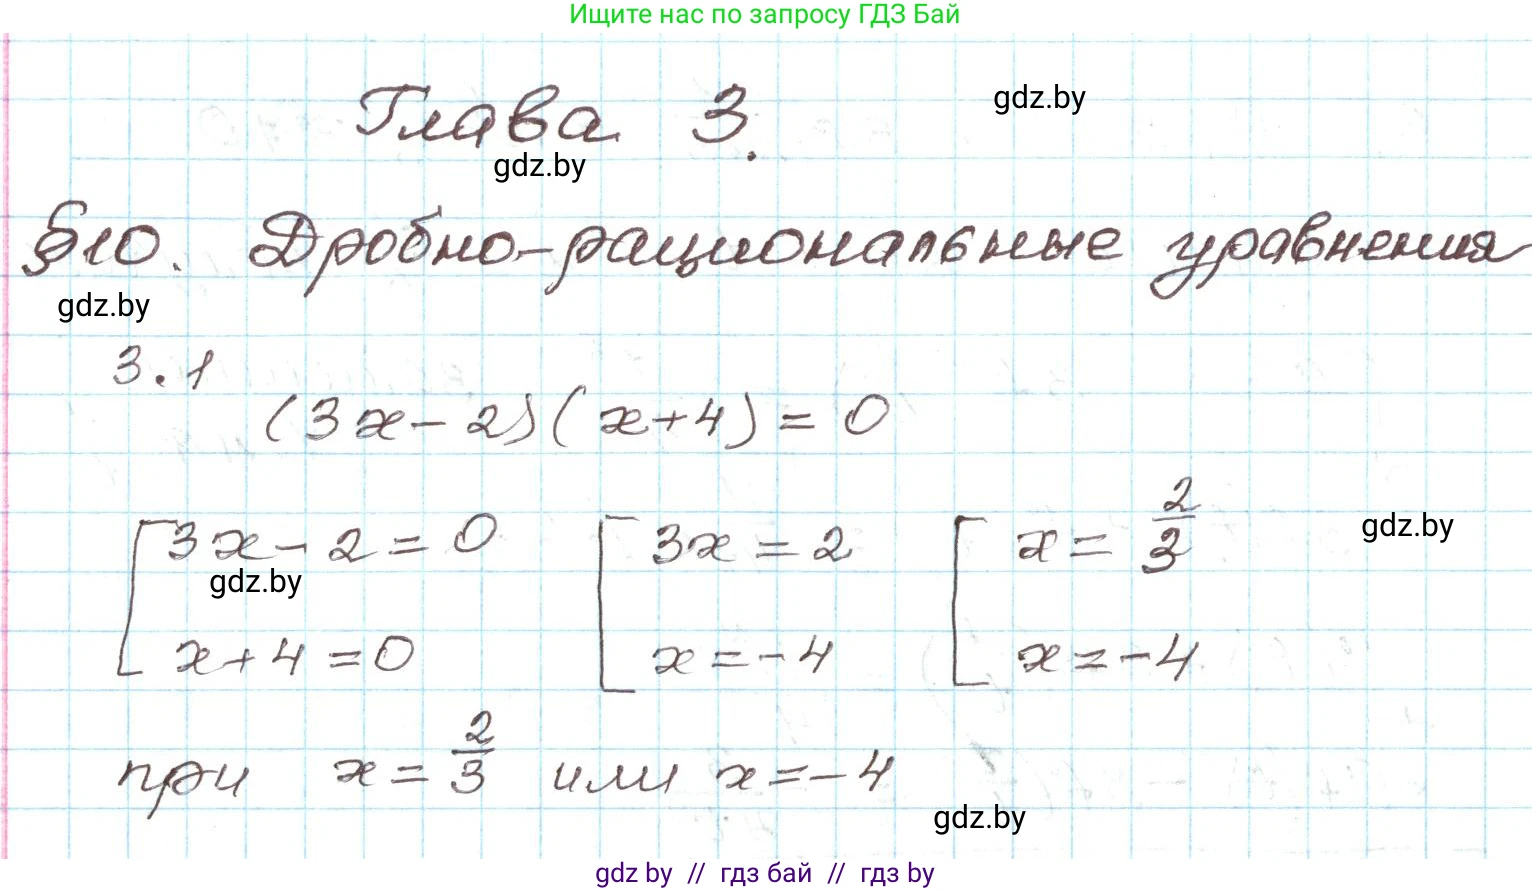 Ищите нас по запросу ГДЗ Бай
Глава 3.
gdz.by
gdz.by
§10. Дробно-рациональные уравнения
gdz.by
3.1
(3x-2)(x+4)=0
[3x-2=0 [3x=2 [x=2/3
gdz.by
gdz.by
x+4=0 x=-4 x=-4
при x=2/3 или x=-4
gdz.by
gdz by // гдз бай // гдз by